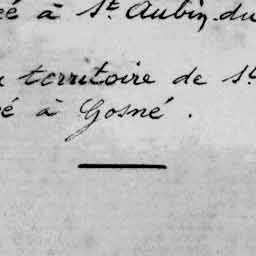 é à St Aubin-du
territoire de St
é à Gosné.